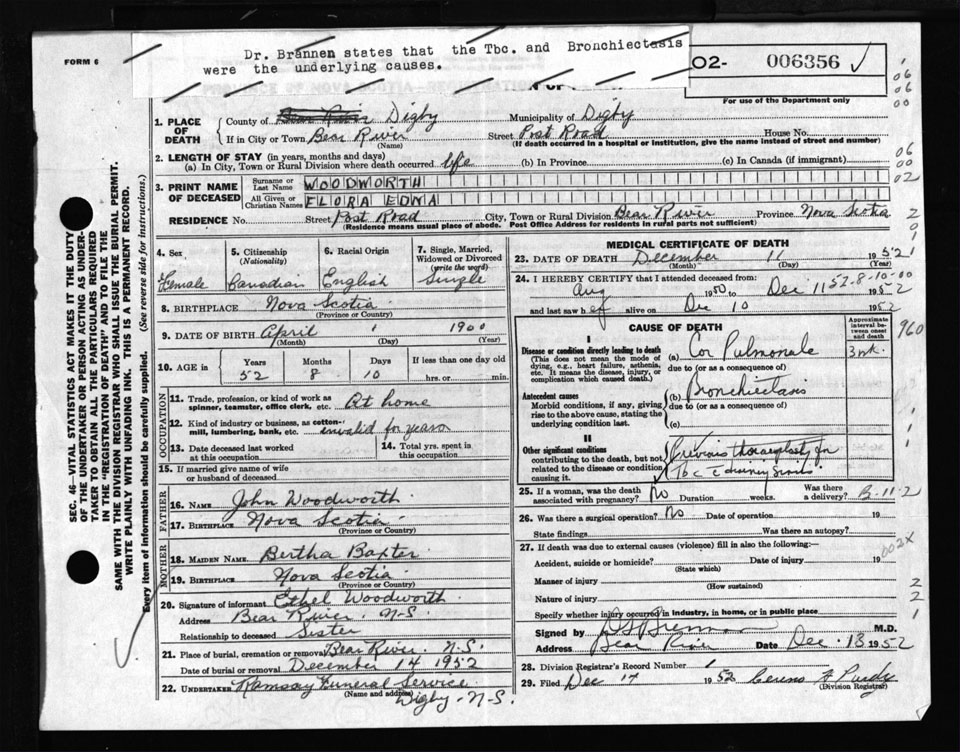 FORM 6
Dr. Brannen states that the Tbc. and Bronchiectasis
were the underlying causes.
O2- 006356
For use of the Department only
1. PLACE OF DEATH
County of Bear River Digby Municipality of Digby
If in City or Town Bear River Street Post Road House No.
(Name) (If death occurred in a hospital or institution, give the name instead of street and number)
2. LENGTH OF STAY (in years, months and days)
(a) In City, Town or Rural Division where death occurred life (b) In Province (c) In Canada (if immigrant)
3. PRINT NAME OF DECEASED
Surname or Last Name WOODWORTH
All Given or Christian Names FLORA EDNA
RESIDENCE No. Street Post Road City, Town or Rural Division Bear River Province Nova Scotia
(Residence means usual place of abode. Post Office Address for residents in rural parts not sufficient)
4. Sex Female
5. Citizenship (Nationality) Canadian
6. Racial Origin English
7. Single, Married, Widowed or Divorced (write the word) Single
8. BIRTHPLACE Nova Scotia
(Province or Country)
9. DATE OF BIRTH April 1 1900
(Month) (Day) (Year)
10. AGE in Years Months Days If less than one day old
52 8 10 hrs. or min.
OCCUPATION
11. Trade, profession, or kind of work as spinner, teamster, office clerk, etc. At home
12. Kind of industry or business, as cotton-mill, lumbering, bank, etc. invalid for years
13. Date deceased last worked at this occupation
14. Total yrs. spent in this occupation
15. If married give name of wife or husband of deceased
FATHER
16. NAME John Woodworth
17. BIRTHPLACE Nova Scotia
(Province or Country)
MOTHER
18. MAIDEN NAME Bertha Baxter
19. BIRTHPLACE Nova Scotia
(Province or Country)
20. Signature of informant Ethel Woodworth
Address Bear River N-S
Relationship to deceased Sister
21. Place of burial, cremation or removal Bear River. N.S.
Date of burial or removal December 14 1952
22. UNDERTAKER Ramsay Funeral Service
(Name and address) Digby-N-S.
MEDICAL CERTIFICATE OF DEATH
23. DATE OF DEATH December 11 1952
(Month) (Day)
24. I HEREBY CERTIFY that I attended deceased from:
Aug 1950 to Dec 11 1952
and last saw her alive on Dec 10 1952
CAUSE OF DEATH
Approximate interval between onset and death
I
Disease or condition directly leading to death
(This does not mean the mode of dying, e.g., heart failure, asthenia, etc. It means the disease, injury, or complication which caused death.)
(a) Cor Pulmonale 3 wk.
due to (or as a consequence of)
Antecedent causes
Morbid conditions, if any, giving rise to the above cause, stating the underlying condition last.
(b) Bronchiectasis
due to (or as a consequence of)
(c)
II
Other significant conditions
contributing to the death, but not related to the disease or condition causing it.
Previous thoracoplasty for
Tbc
25. If a woman, was the death associated with pregnancy? No Duration weeks. Was there a delivery?
B-11-2
26. Was there a surgical operation? No Date of operation 19
State findings Was there an autopsy?
27. If death was due to external causes (violence) fill in also the following:—
Accident, suicide or homicide? Date of injury 19
(State which)
002X
Manner of injury
(How sustained)
Nature of injury
Specify whether injury occurred in industry, in home, or in public place
Signed by M.D.
Address Bear River Date Dec. 13 1952
28. Division Registrar's Record Number 1
29. Filed Dec 17 1952 Cereno A Purdy
(Division Registrar)
SEC. 46—VITAL STATISTICS ACT MAKES IT THE DUTY OF THE UNDERTAKER OR PERSON ACTING AS UNDERTAKER TO OBTAIN ALL THE PARTICULARS REQUIRED IN THE "REGISTRATION OF DEATH" AND TO FILE THE SAME WITH THE DIVISION REGISTRAR WHO SHALL ISSUE THE BURIAL PERMIT.
WRITE PLAINLY WITH UNFADING INK. THIS IS A PERMANENT RECORD.
Every item of information should be carefully supplied. (See reverse side for instructions.)
06
06
00
06
00
02
960